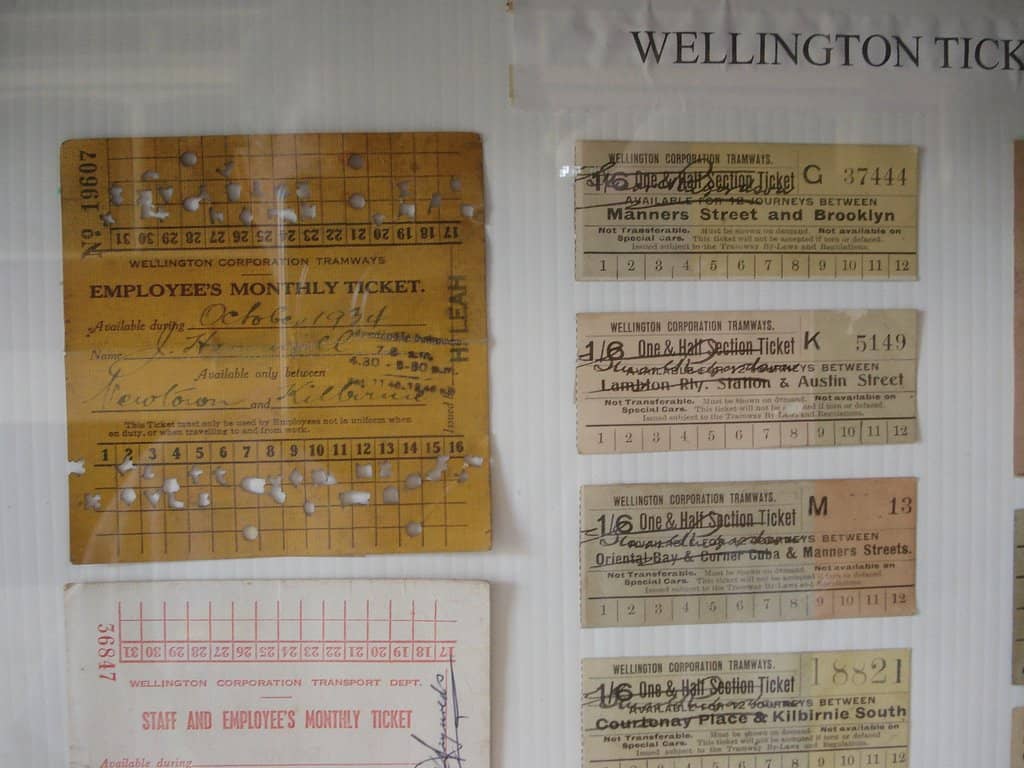 WELLINGTON TICK
No 19607
31 30 29 28 27 26 25 24 23 22 21 20 19 18 17
WELLINGTON CORPORATION TRAMWAYS
EMPLOYEE'S MONTHLY TICKET.
Available during October 1934
Name J.
Available only between
Newtown and Kilbirnie
7-8 a.m.
4.30 - 5-30 p.m.
This Ticket must only be used by Employees not in uniform when
on duty, or when travelling to and from work.
Issued by HILEAH
1 2 3 4 5 6 7 8 9 10 11 12 13 14 15 16
36847
31 30 29 28 27 26 25 24 23 22 21 20 19 18 17
WELLINGTON CORPORATION TRANSPORT DEPT.
STAFF AND EMPLOYEE'S MONTHLY TICKET
Available during
WELLINGTON CORPORATION TRAMWAYS.
1/6 One & Half Section Ticket G 37444
AVAILABLE FOR 12 JOURNEYS BETWEEN
Manners Street and Brooklyn
Not Transferable. Must be shown on demand. Not available on
Special Cars. This ticket will not be accepted if torn or defaced.
Issued subject to the Tramway By-Laws and Regulations.
1 2 3 4 5 6 7 8 9 10 11 12
WELLINGTON CORPORATION TRAMWAYS.
1/6 One & Half Section Ticket K 5149
AVAILABLE FOR 12 JOURNEYS BETWEEN
Lambton Rly. Station & Austin Street
Not Transferable. Must be shown on demand. Not available on
Special Cars. This ticket will not be accepted if torn or defaced.
Issued subject to the Tramway By-Laws and Regulations.
1 2 3 4 5 6 7 8 9 10 11 12
WELLINGTON CORPORATION TRAMWAYS.
1/6 One & Half Section Ticket M 13
AVAILABLE FOR 12 JOURNEYS BETWEEN
Oriental Bay & Corner Cuba & Manners Streets.
Not Transferable. Must be shown on demand. Not available on
Special Cars. This ticket will not be accepted if torn or defaced.
Issued subject to the Tramway By-Laws and Regulations.
1 2 3 4 5 6 7 8 9 10 11 12
WELLINGTON CORPORATION TRAMWAYS.
1/6 One & Half Section Ticket 18821
AVAILABLE FOR 12 JOURNEYS BETWEEN
Courtenay Place & Kilbirnie South
Not Transferable. Must be shown on demand. Not available on
Special Cars. This ticket will not be accepted if torn or defaced.
Issued subject to the Tramway By-Laws and Regulations.
1 2 3 4 5 6 7 8 9 10 11 12